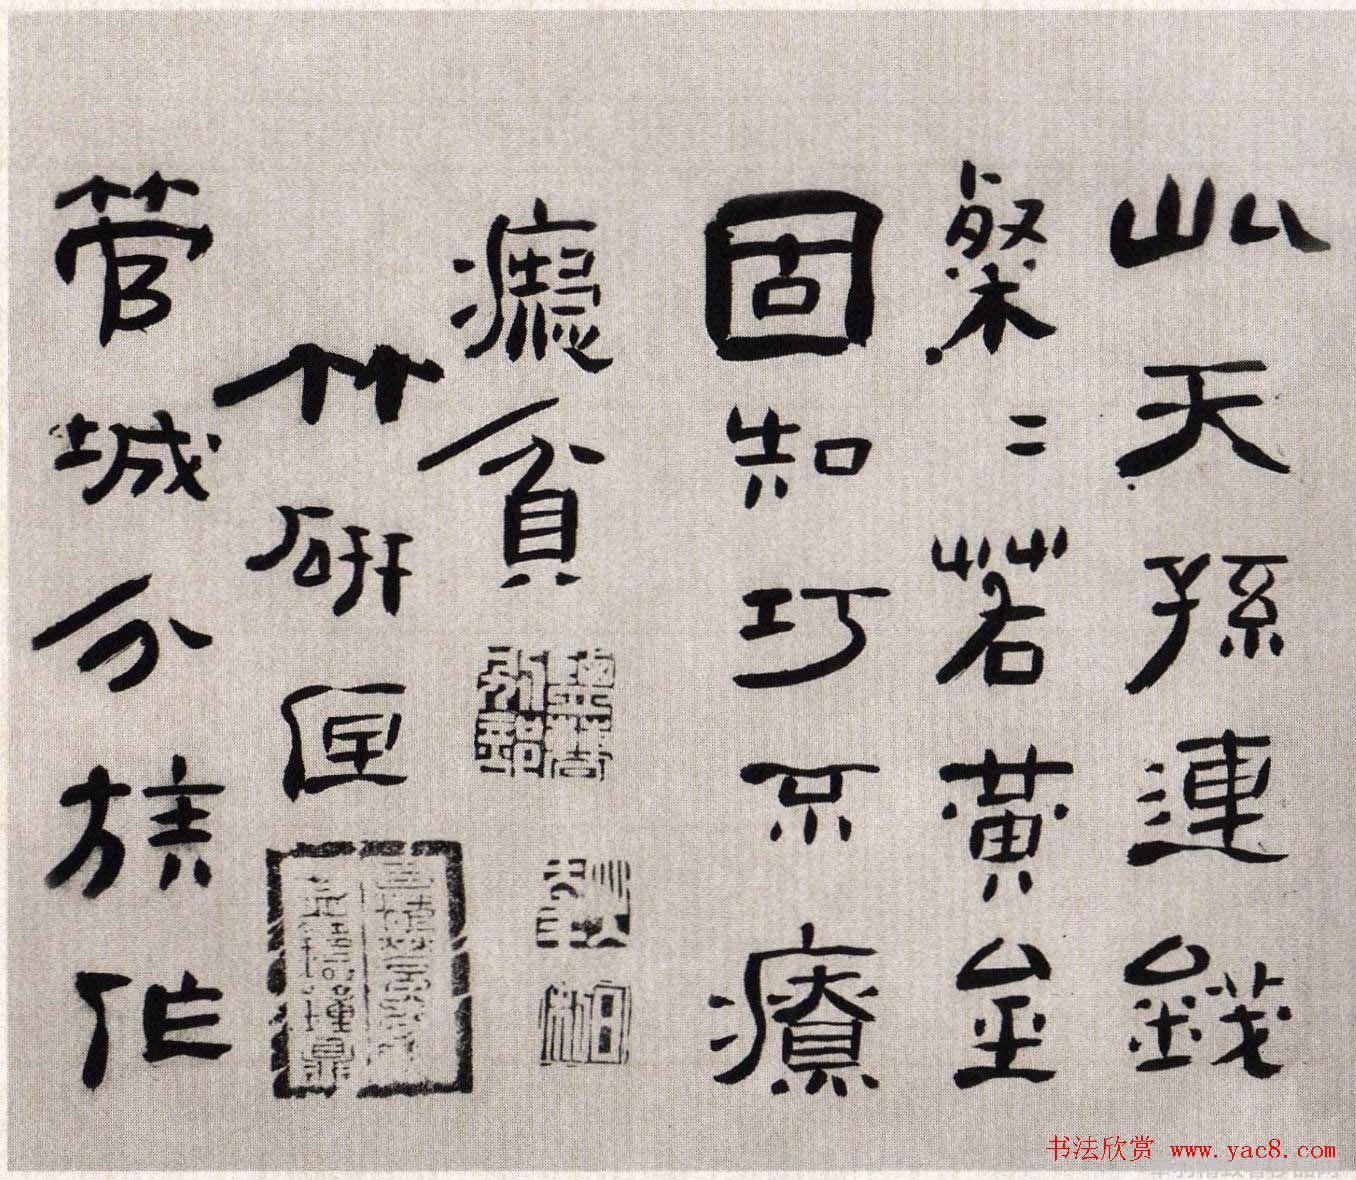 天孫連錢
粲〻若黃金
固知巧不療
癡貧
竹研匣
管城分族作
书法欣赏 www.yac8.com